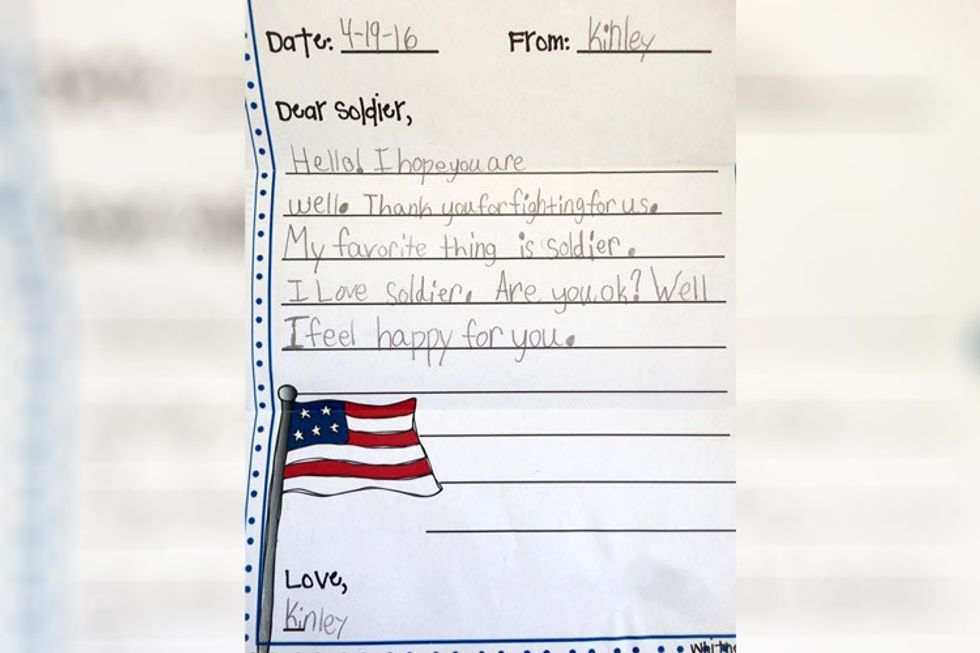 Date: 4-19-16 From: Kinley
Dear Soldier,
Hello! I hope you are
well. Thank you for fighting for us.
My favorite thing is soldier.
I Love soldier. Are you ok? Well
I feel happy for you.
Love,
Kinley